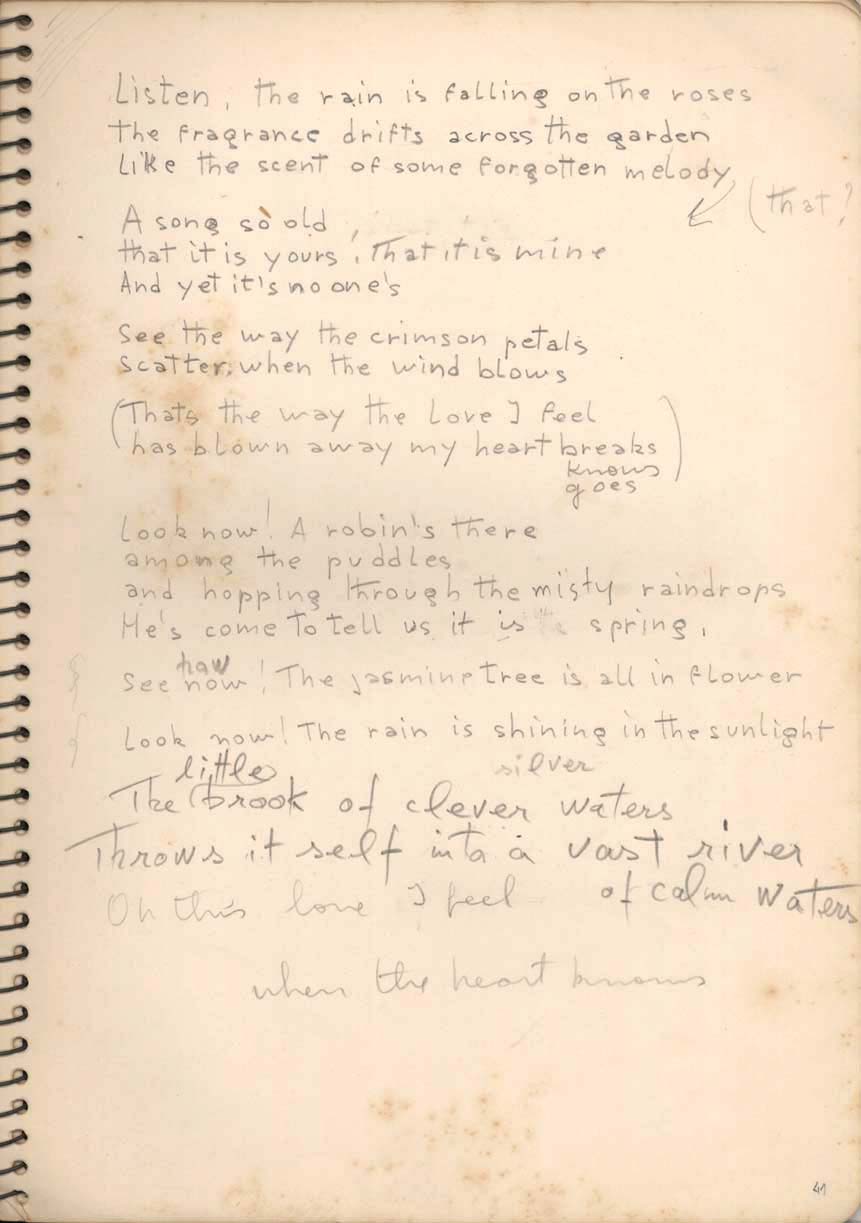 Listen, the rain is falling on the roses
the fragrance drifts across the garden
Like the scent of some forgotten melody
(that?
A song so old,
that it is yours, that it is mine
And yet it's no one's
See the way the crimson petals
scatter, when the wind blows
(Thats the way the Love I feel
has blown away my heart breaks)
knows
goes
Look now! A robin's there
among the puddles
and hopping through the misty raindrops
He's come to tell us it is spring.
how
See now! The jasmine tree is all in flower
Look now! The rain is shining in the sunlight
little silver
The brook of clever waters
Throws it self into a vast river
of calm waters
Oh this love I feel
when the heart knows
41